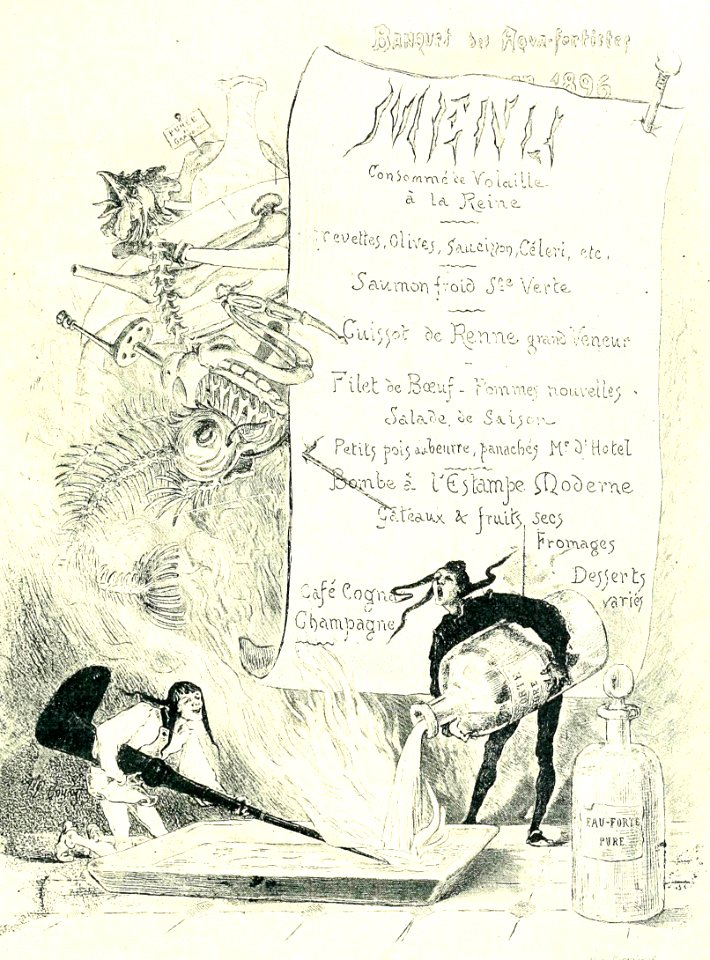 Banquet des Aqua-fortistes
1896
MENU
Consommé de Volaille
à la Reine
revettes, Olives, Saucisson, Céleri, etc.
Saumon froid Sce Verte
Cuissot de Renne grand Veneur
Filet de Bœuf - Pommes nouvelles
Salade de Saison
Petits pois au beurre, panachés Me d'Hotel
Bombe à l'Estampe Moderne
Gâteaux & fruits secs
Fromages
Desserts
variés
Café Cogna
Champagne
EAU-FORTE
PURE